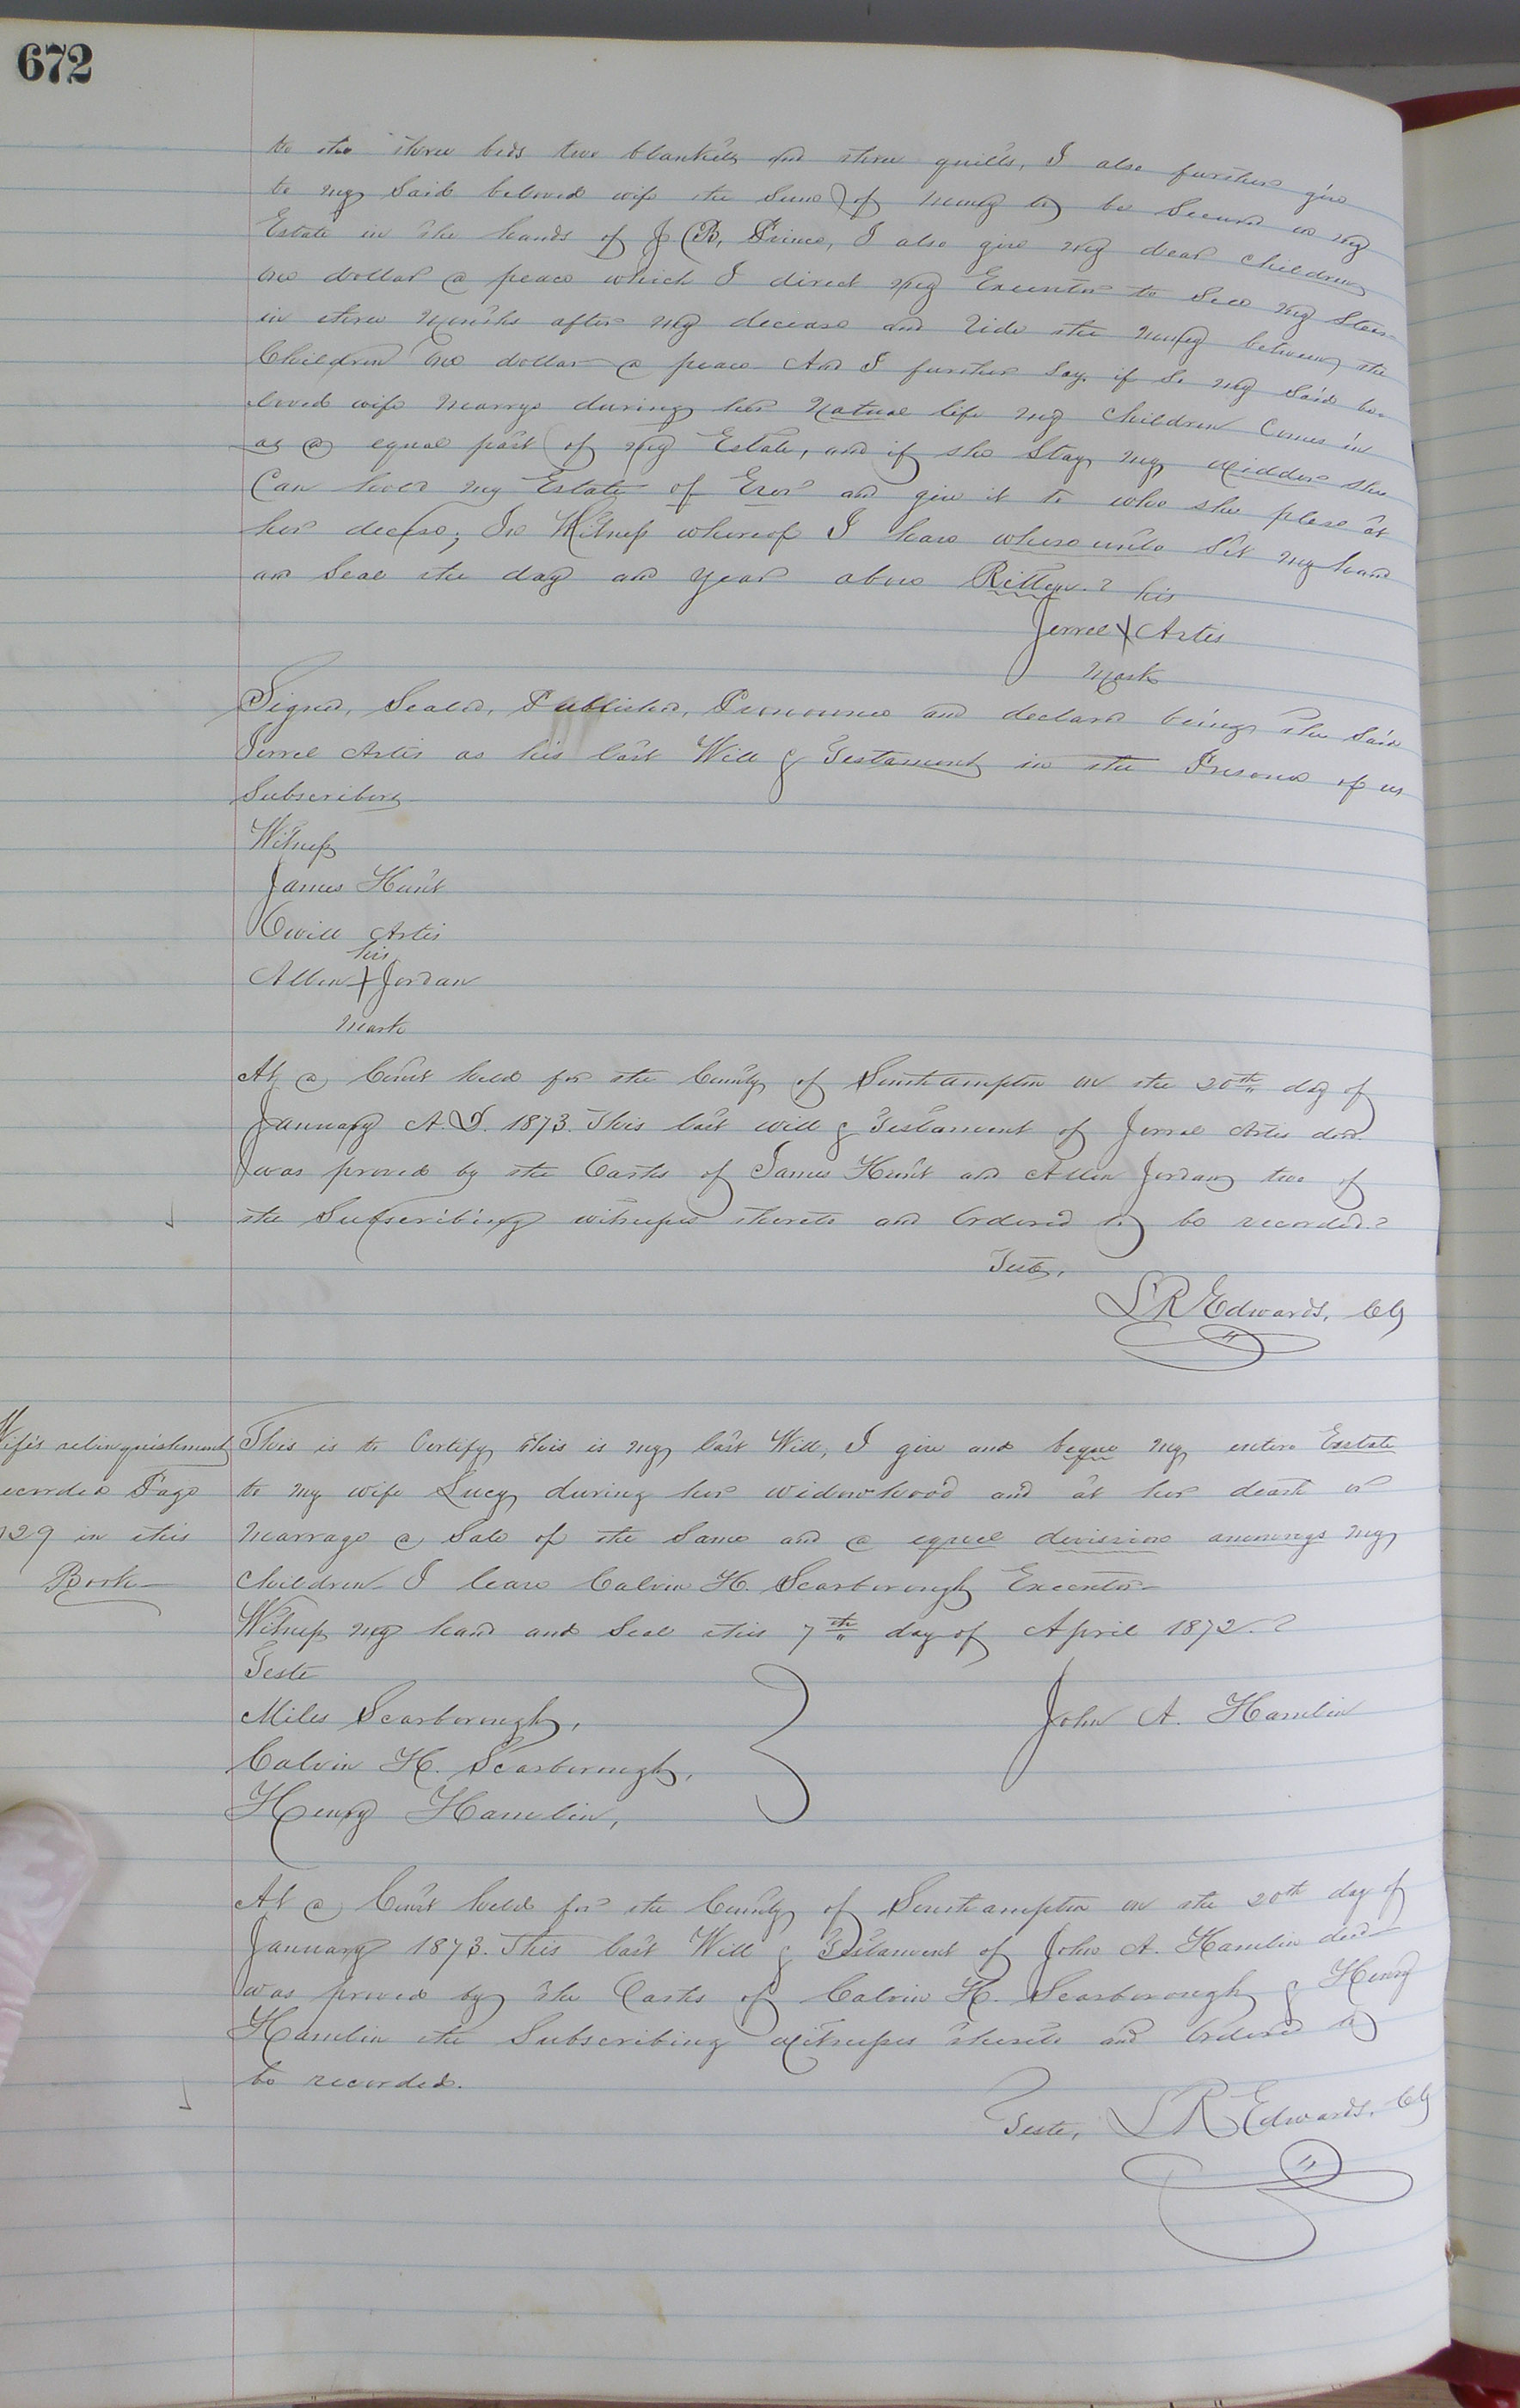 672
to the three beds two blankets and three quilts, I also further give
to my Said beloved wife the Sum of money to be Secured in my
Estate in the hands of J. B. Prince, I also give my dear children
one dollar a peace which I direct my Executor to See my
in three Months after my decease and vide the money between the
Children one dollar a peace And I further Say. if So my Said be-
loved wife marrys during her Natual life my Children Comes in
as a equal part of my Estate, and if she Stay my Widder she
Can hold my Estate of Ever and give it to who she plese at
her decese; In Witness whereof I have whereunto Set my hand
and Seal the day and year above Ritten.
his
Jerrel X Artis
Mark
Signed, Sealed, Published, Pronounced and declared being the Said
Jerrel Artis as his last Will & Testament in the Presence of us
Subscribers
Witness
James Hunt
Artis
his
Allen X Jordan
Mark
At a Court held for the County of Southampton on the 20th day of
January A.D. 1873. This last will & Testament of Jerrel Artis decd.
was proved by the Oaths of James Hunt and Allen Jordan two of
the Subscribing witnesses thereto and Ordered to be recorded.
Teste,
L R Edwards, Clk
Wife's relinquishment
recorded Page
729 in this
Book
This is to Certify this is my last Will, I give and beque my entire Esstate
to my wife Lucy during her widowhood and at her death or
Marrage a Sale of the Same and a equel division amongs my
children I leave Calvin H. Scarborough Executor
Witness my hand and Seal this 7th day of April 1872.
Teste
Miles Scarborough,
Calvin H. Scarborough,
Henry Hamlin,
John A. Hamlin
At a Court held for the County of Southampton on the 20th day of
January 1873. This last Will & Testament of John A. Hamlin decd
was proved by the Oaths of Calvin H. Scarborough & Henry
Hamlin the Subscribing witnesses thereto and Ordered to
be recorded.
Teste, L R Edwards, Clk